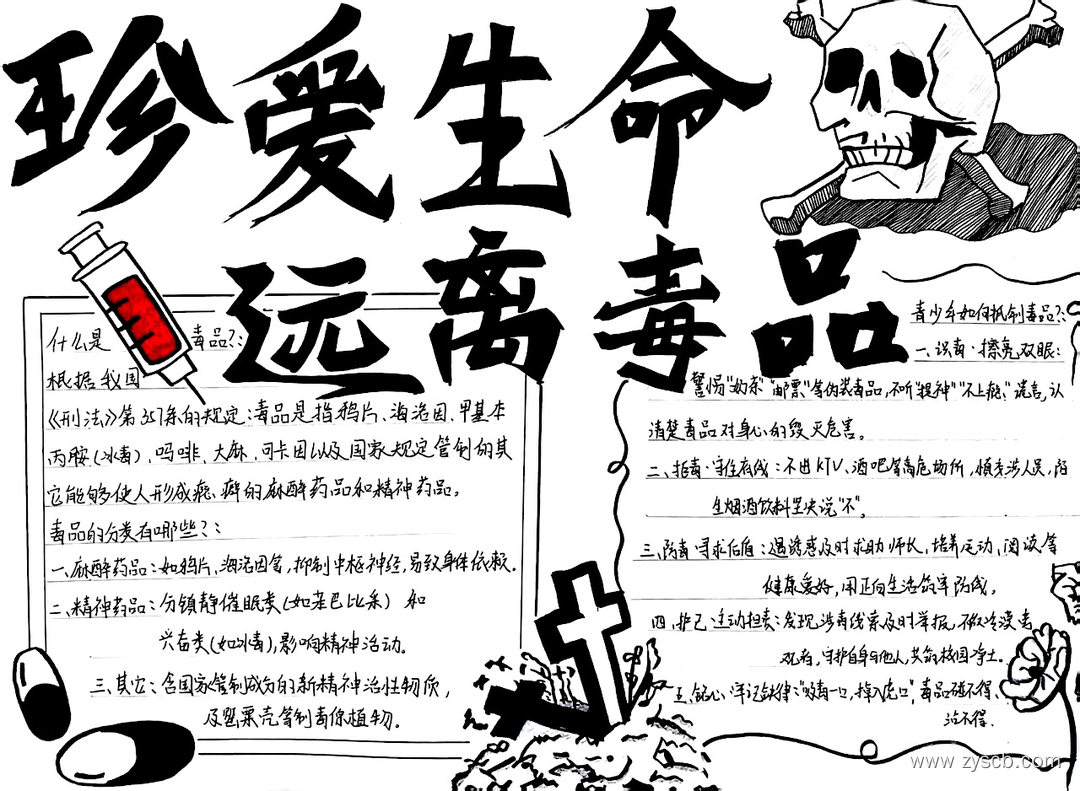 珍爱生命
远离毒品
什么是毒品?:
根据我国
《刑法》第357条的规定:毒品是指鸦片、海洛因、甲基苯
丙胺(冰毒)、吗啡、大麻、可卡因以及国家规定管制的其
它能够使人形成瘾癖的麻醉药品和精神药品。
毒品的分类有哪些?:
一、麻醉药品:如鸦片、海洛因等,抑制中枢神经,易致身体依赖。
二、精神药品:分镇静催眠类(如苯巴比妥)和
兴奋类(如冰毒),影响精神活动。
三、其它:含国家管制成分的新精神活性物质,
及罂粟壳等制毒原植物。
青少年如何抵制毒品?:
一、识毒·擦亮双眼:
警惕"奶茶""邮票"等伪装毒品,不听"提神""不上瘾"谎言,认
清楚毒品对身心的毁灭危害。
二、拒毒·守住底线:不进KTV、酒吧等高危场所,慎交涉人员,陌
生烟酒饮料坚决说"不"。
三、防毒·寻求后盾:遇诱惑及时求助师长,培养运动、阅读等
健康爱好,用正向生活筑牢防线。
四、护己·主动担责:发现涉毒线索及时举报,不做冷漠旁
观者,守护自身与他人,共筑校园净土。
五、铭心·牢记铁律:"吸毒一口,掉入虎口",毒品碰不得、
沾不得.
www.zyscb.com